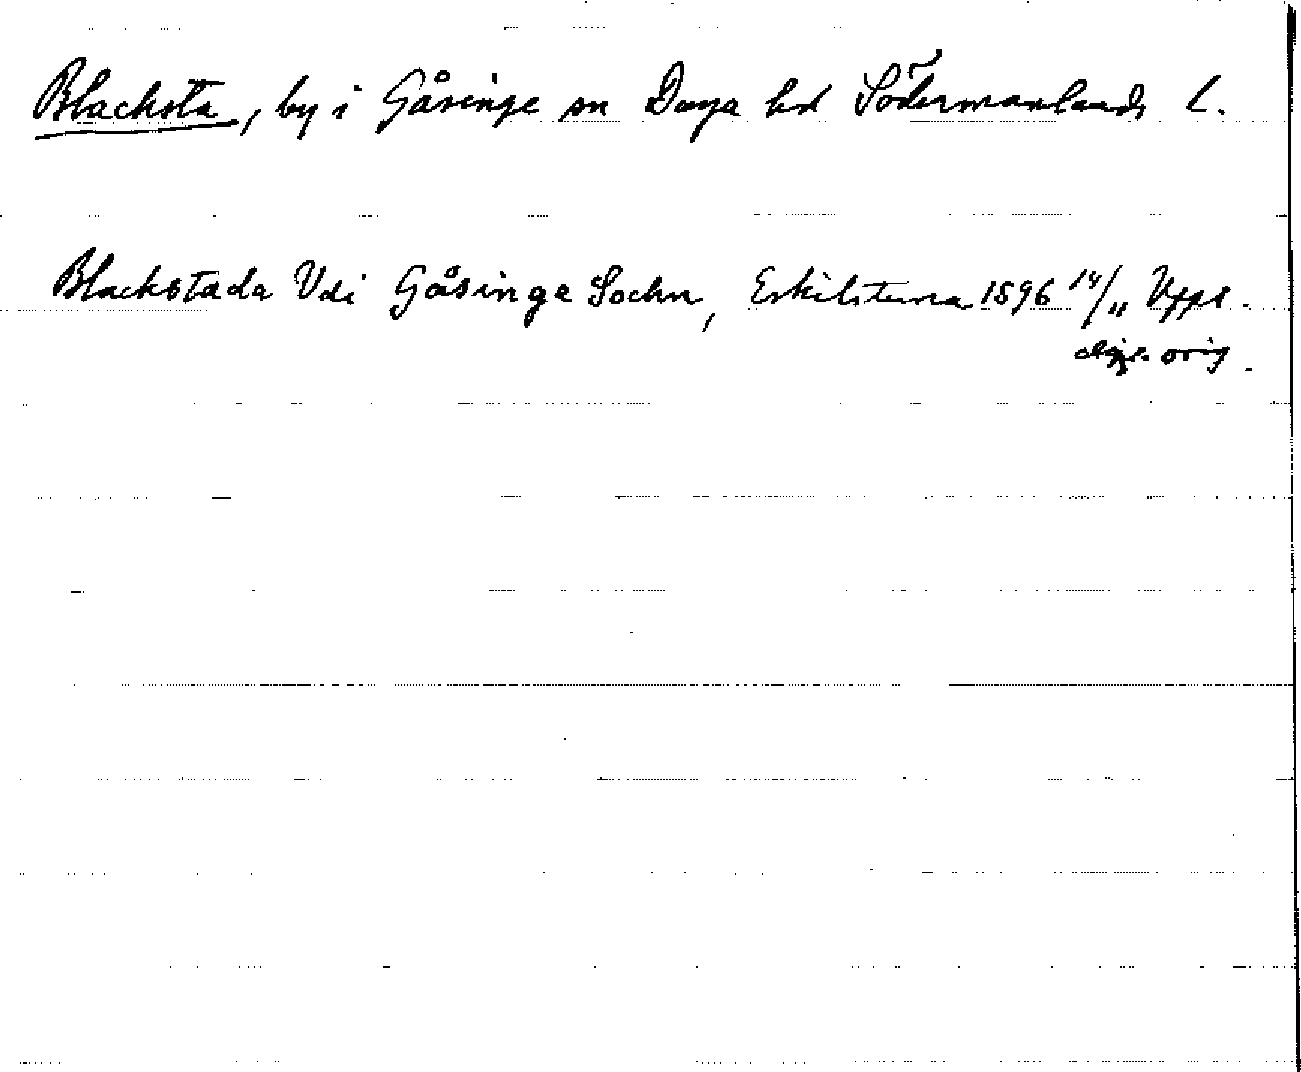 Blacksta, by i Gåsinge sn Daga hd Södermanlands l.
Blackstada Vdi Gåsinge Sochn, Eskilstuna 1596 14/11 Upps.
dipl. orig.